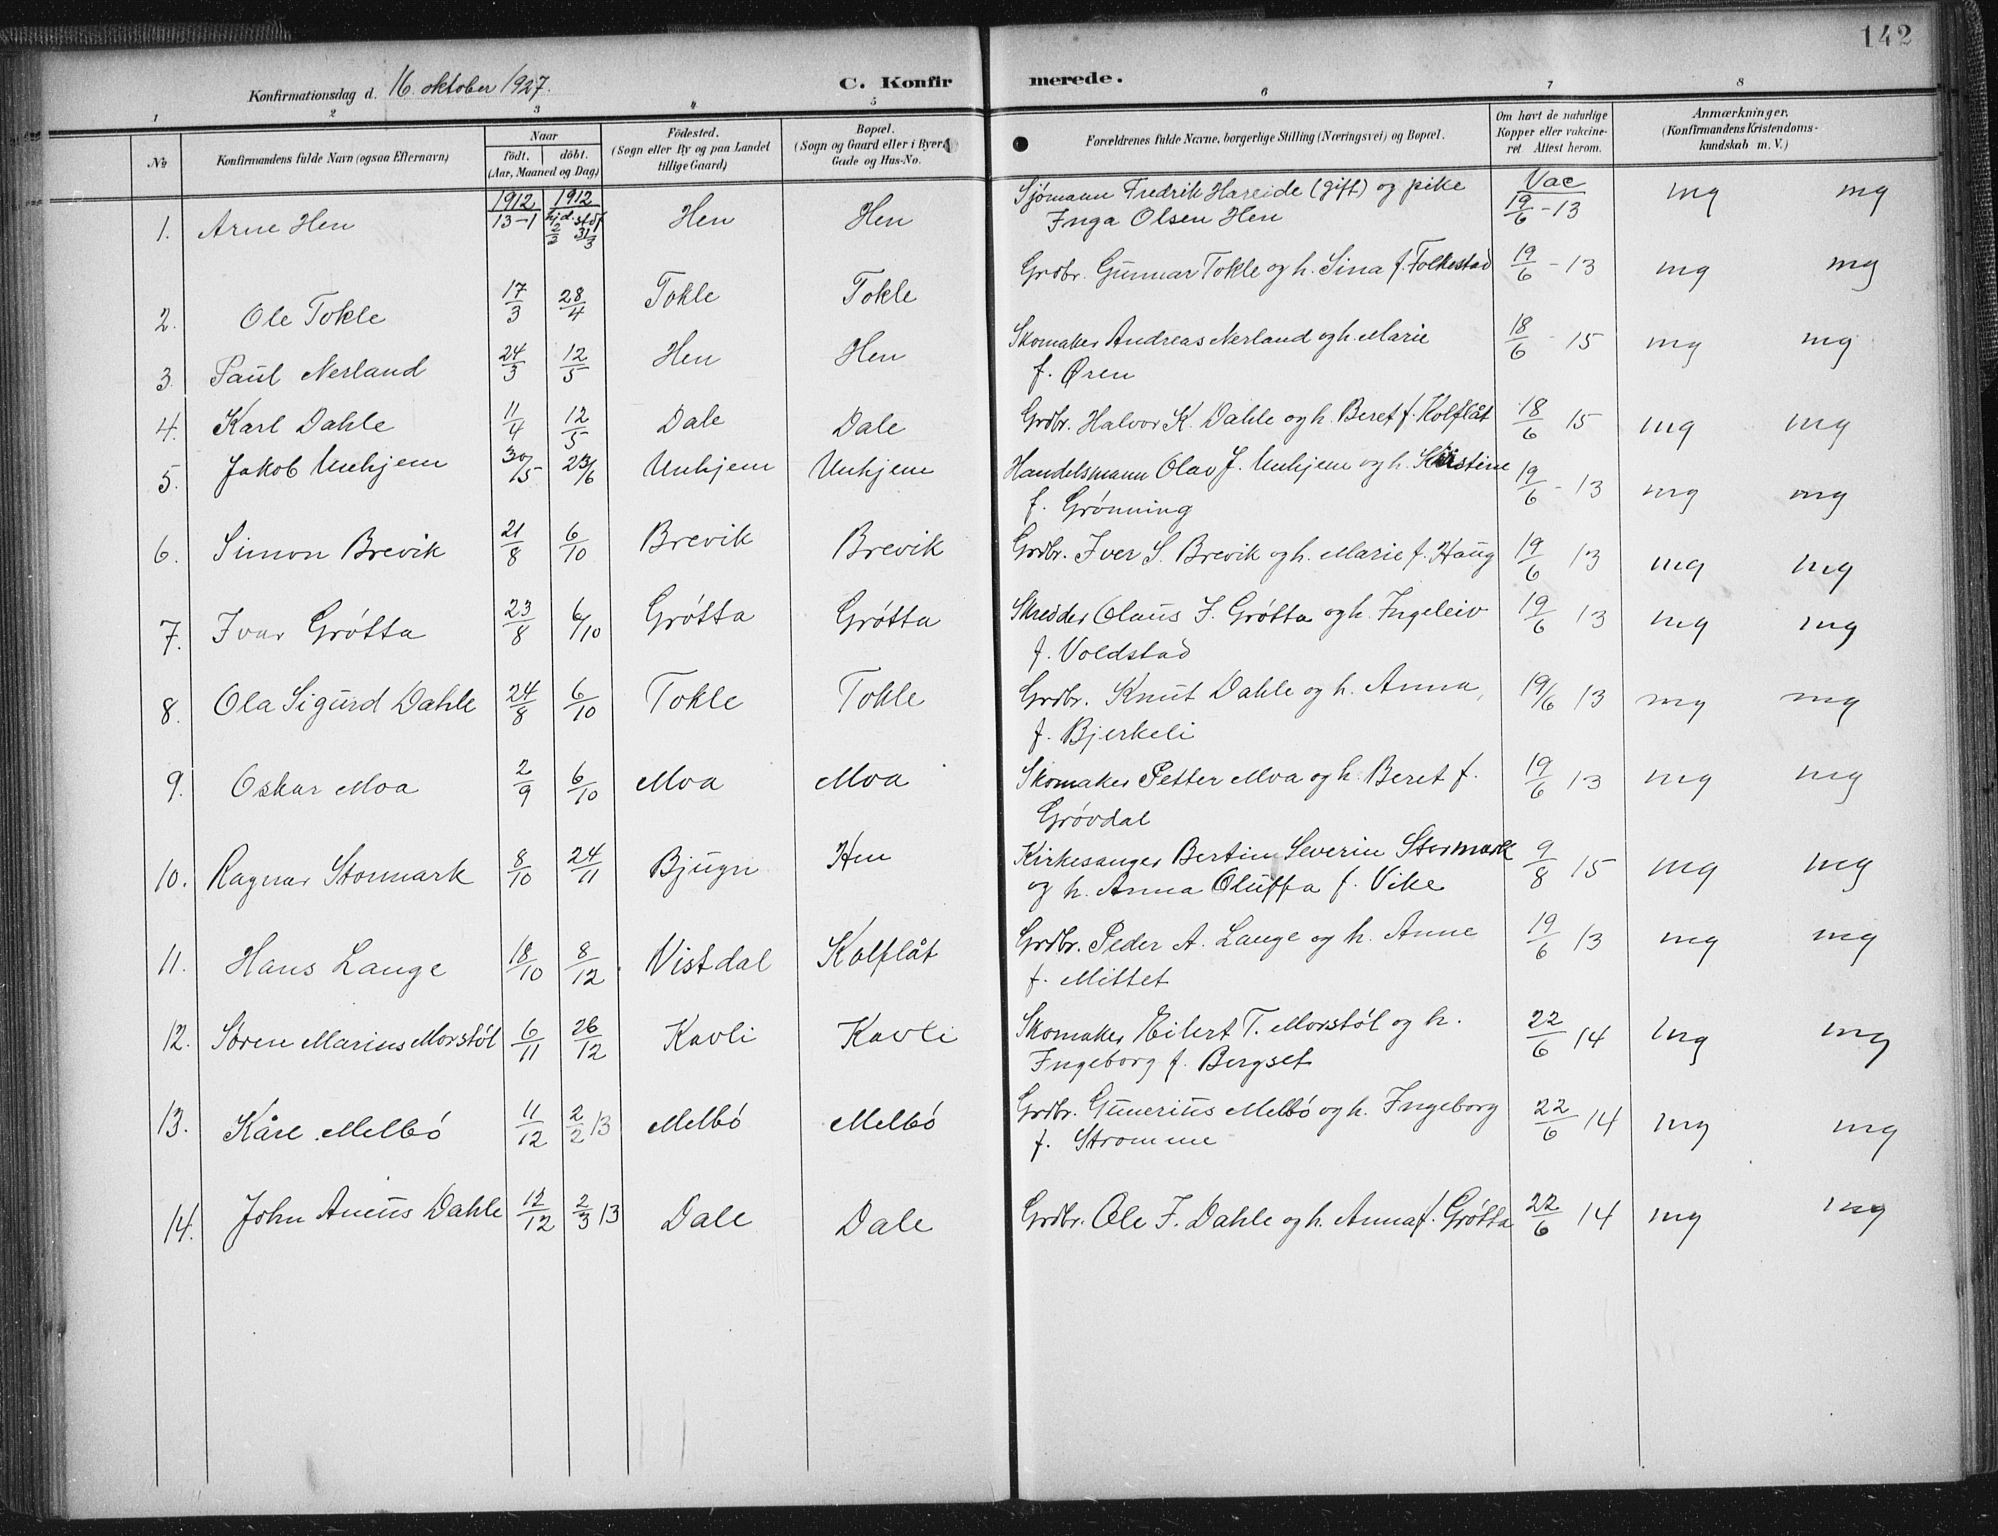 142
Konfirmationsdag d. 16. oktober 1927. C. Konfirmerede.
1 2 3 4 5 6 7 8
No Konfirmandens fulde Navn (ogsaa Efternavn) Naar født. døbt. (Aar, Maaned og Dag) Fødested. (Sogn eller By og paa Landet tillige Gaard) Bopæl. (Sogn og Gaard eller i Byer Gade og Hus-No. Forældrenes fulde Navne, borgerlige Stilling (Næringsvei) og Bopæl. Om havt de naturlige Kopper eller vakcineret. Attest herom. Anmærkninger. (Konfirmandens Kristendomskundskab m. V.)
1912 1912 Vac
1. Arne Hen 13-1 hjd. 2/2 stdf 31/3 Hen Hen Sjømann Fredrik Hareide (gift) og pike 19/6 - 13 mg mg
Inga Olsen Hen
2. Ole Tokle 17/3 28/4 Tokle Tokle Grdbr. Gunnar Tokle og h. Sina f. Folkestad 19/6 - 13 mg mg
3. Paul Nerland 24/3 12/5 Hen Hen Skomaker Andreas Nerland og h. Marie 18/6 - 15 mg mg
f. Øren
4. Karl Dahle 11/4 12/5 Dale Dale Grdbr. Halvor K. Dahle og h. Beret f. Kolflåt 18/6 15 mg mg
5. Jakob Unhjem 30/5 23/6 Unhjem Unhjem Handelsmann Olav J. Unhjem og h. Kristine 19/6 - 13 mg mg
f. Grønning
6. Simon Brevik 21/8 6/10 Brevik Brevik Grdbr. Iver S. Brevik og h. Marie f. Haug 19/6 13 mg mg
7. Ivar Grøtta 23/8 6/10 Grøtta Grøtta Skredder Olaus I. Grøtta og h. Ingeleiv 19/6 13 mg mg
f. Voldstad
8. Ola Sigurd Dahle 24/8 6/10 Tokle Tokle Grdbr. Knut Dahle og h. Anna, 19/6 13 mg mg
f. Bjerkeli
9. Oskar Moa 2/9 6/10 Moa Moa Skomaker Petter Moa og h. Beret f. 19/6 13 mg mg
Grøvdal
10. Ragnar Stormark 8/10 24/11 Bjugn Hen Kirkesanger Bertin Severin Stormark 9/8 15 mg mg
og h. Anna Oluffa f. Vike
11. Hans Lange 18/10 8/12 Vistdal Kolflåt Grdbr. Peder A. Lange og h. Anne 19/6 13 mg mg
f. Mittet
12. Søren Marius Morstøl 6/11 26/12 Kavli Kavli Skomaker Eilert T. Morstøl og h. 22/6 14 mg mg
Ingeborg f. Bergset
13. Kåre Melbø 11/12 2/2 13 Melbø Melbø Grdbr. Gunerius Melbø og h. Ingeborg 22/6 14 mg mg
f. Strømme
14. John Aneus Dahle 12/12 2/3 13 Dale Dale Grdbr. Ole F. Dahle og h. Anna f. Grøtta 22/6 14 mg mg